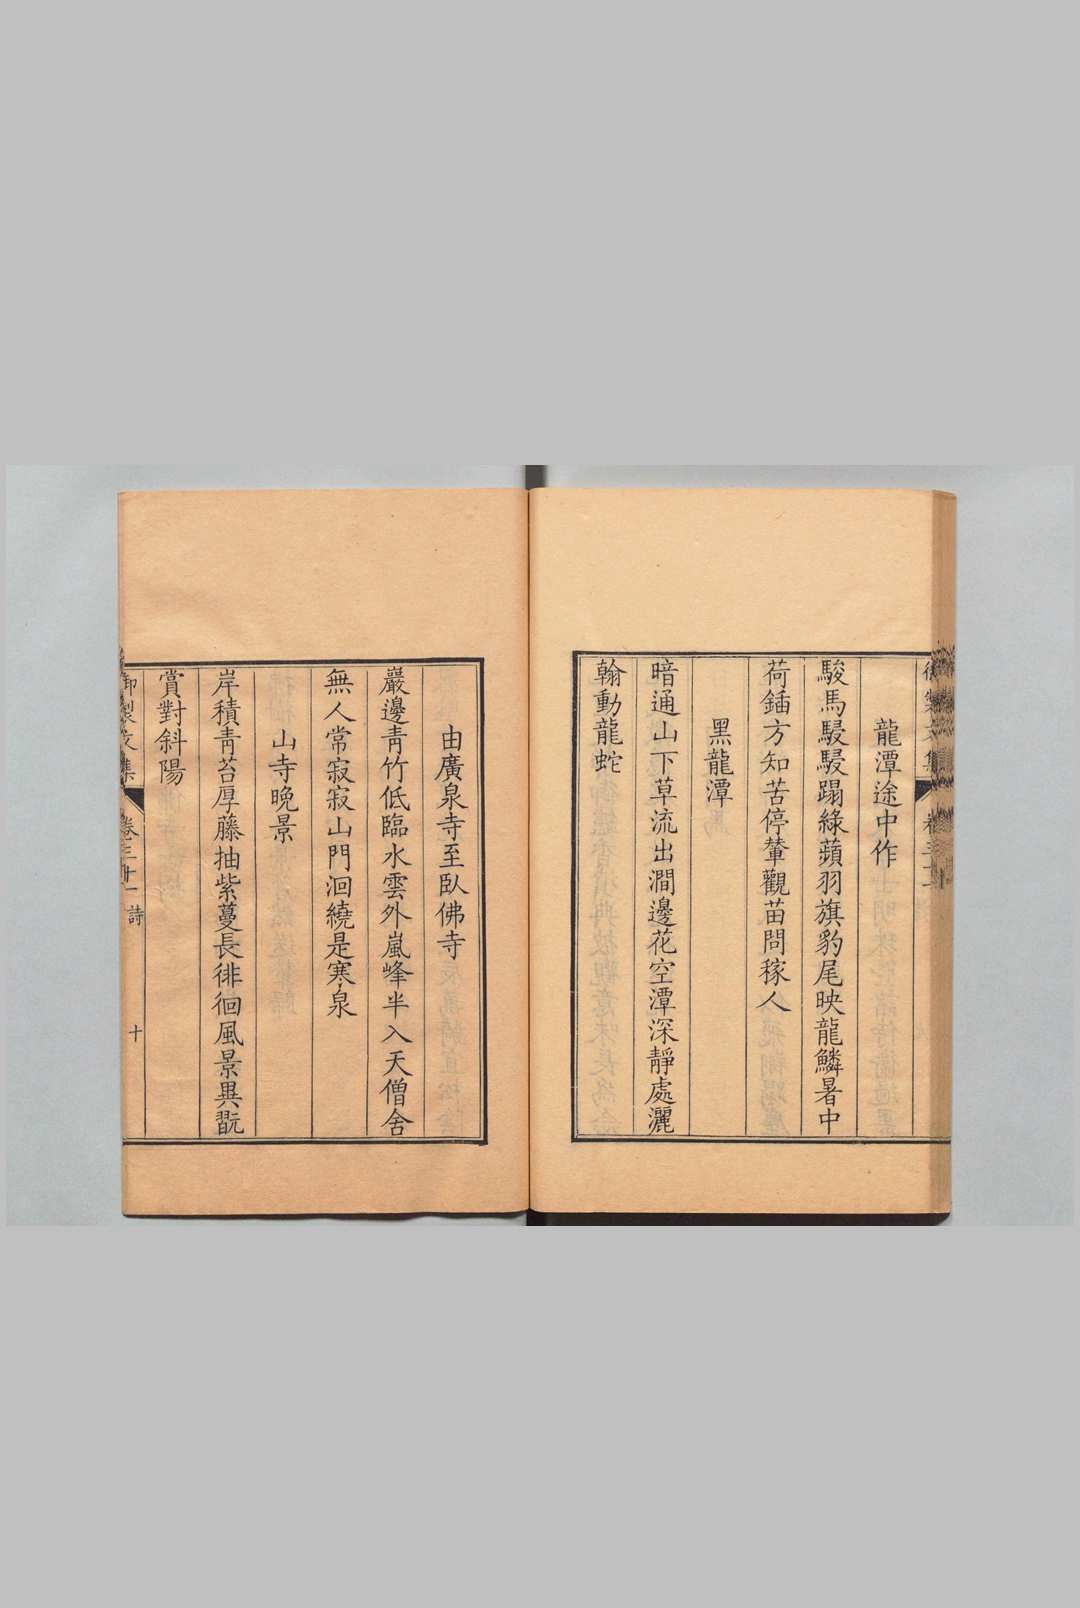 龍潭途中作
駿馬駸駸蹋綠蘋羽旗豹尾映龍鱗暑中
荷鍤方知苦停輦觀苗問稼人
黑龍潭
暗通山下草流出澗邊花空潭深靜處灑
翰動龍蛇
由廣泉寺至臥佛寺
巖邊靑竹低臨水雲外嵐峰半入天僧舍
無人常寂寂山門洄繞是寒泉
山寺晚景
岸積靑苔厚藤抽紫蔓長徘徊風景異翫
賞對斜陽
御製文集 卷三十一 詩 十